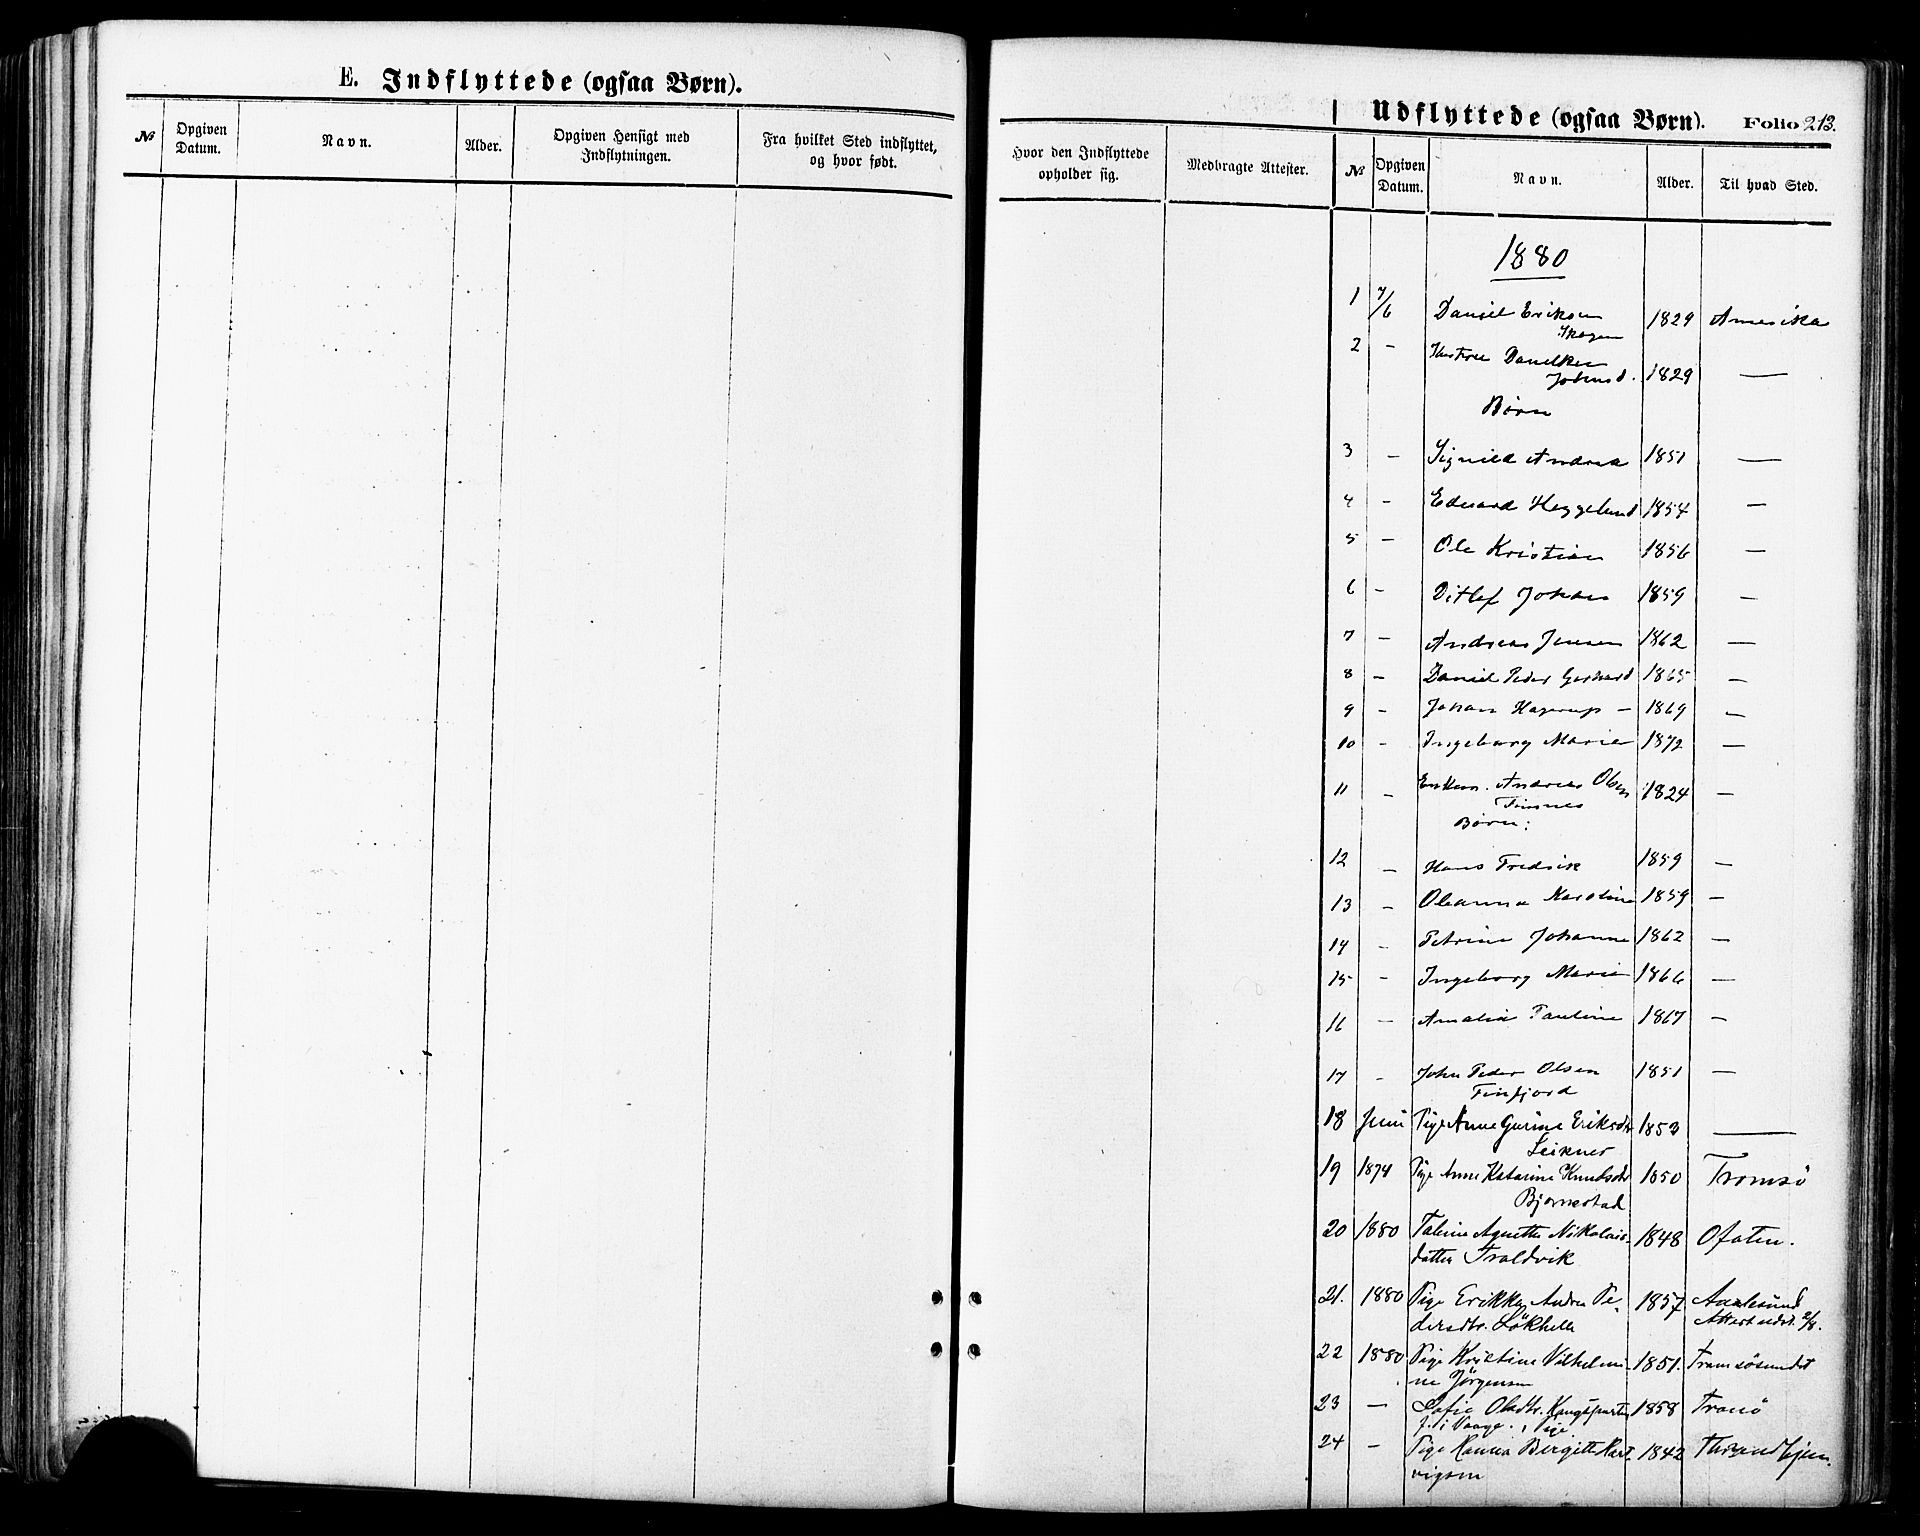 E. Indflyttede (ogsaa Børn).
№ Opgiven Datum. Navn. Alder. Opgiven Hensigt med Indflytningen. Fra hvilket Sted indflyttet, og hvor født.
Udflyttede (ogsaa Børn). Folio 213.
Hvor den Indflyttede opholder sig. Medbragte Attester. № Opgiven Datum. Navn. Alder. Til hvad Sted.
1880
1 7/6 Daniel Eriksen 1829 Amerika
Skogen
2 – Hustru
Johnsd. 1829 —
Børn
3 – Andrea 1851 —
4 – Eduard Heggelund 1854 —
5 – Ole Kristian 1856 —
6 – Ditlef Johan 1859 —
7 – Andreas Jensen 1862 —
8 – Daniel Peder Gerhard 1865 —
9 – Johan Hagerup – 1869 —
10 – Ingeborg Marie 1872 —
11 – Enkem. Andreas Olsen 1824 —
Finnes
Børn:
12 – Hans Fredrik 1859 —
13 – Oleanna Karoline 1859 —
14 – Petrine Johanne 1862 —
15 – Ingeborg Marie 1866 —
16 – Amalia Pauline 1867 —
17 – John Peder Olsen 1851 —
Finfjord
18 Juni Pige Anne Gurine Eriksdtr 1853 —
Leiknes
19 1874 Pige Anne Katarina Knudsdtr 1850 Tromsö
Bjørnestad
20 1880 Agnethe Nikolais- 1848 Ofoten.
datter Troldvik
21. 1880 Pige Erikka Andrea Pe- 1857 Aalesund
dersdtr. Lökhelle Attest udst. 2/8.
22 1880 Pige Kristine Vilhelmi- 1851. Tromsösundet
ne Jörgensen
23 — Sofie Olsdtr. 1858 Tranö
f. i Vaage. , Pige
24 — Pige Hanna Bergitte Hart- 1842 Throndhjem.
vigsen